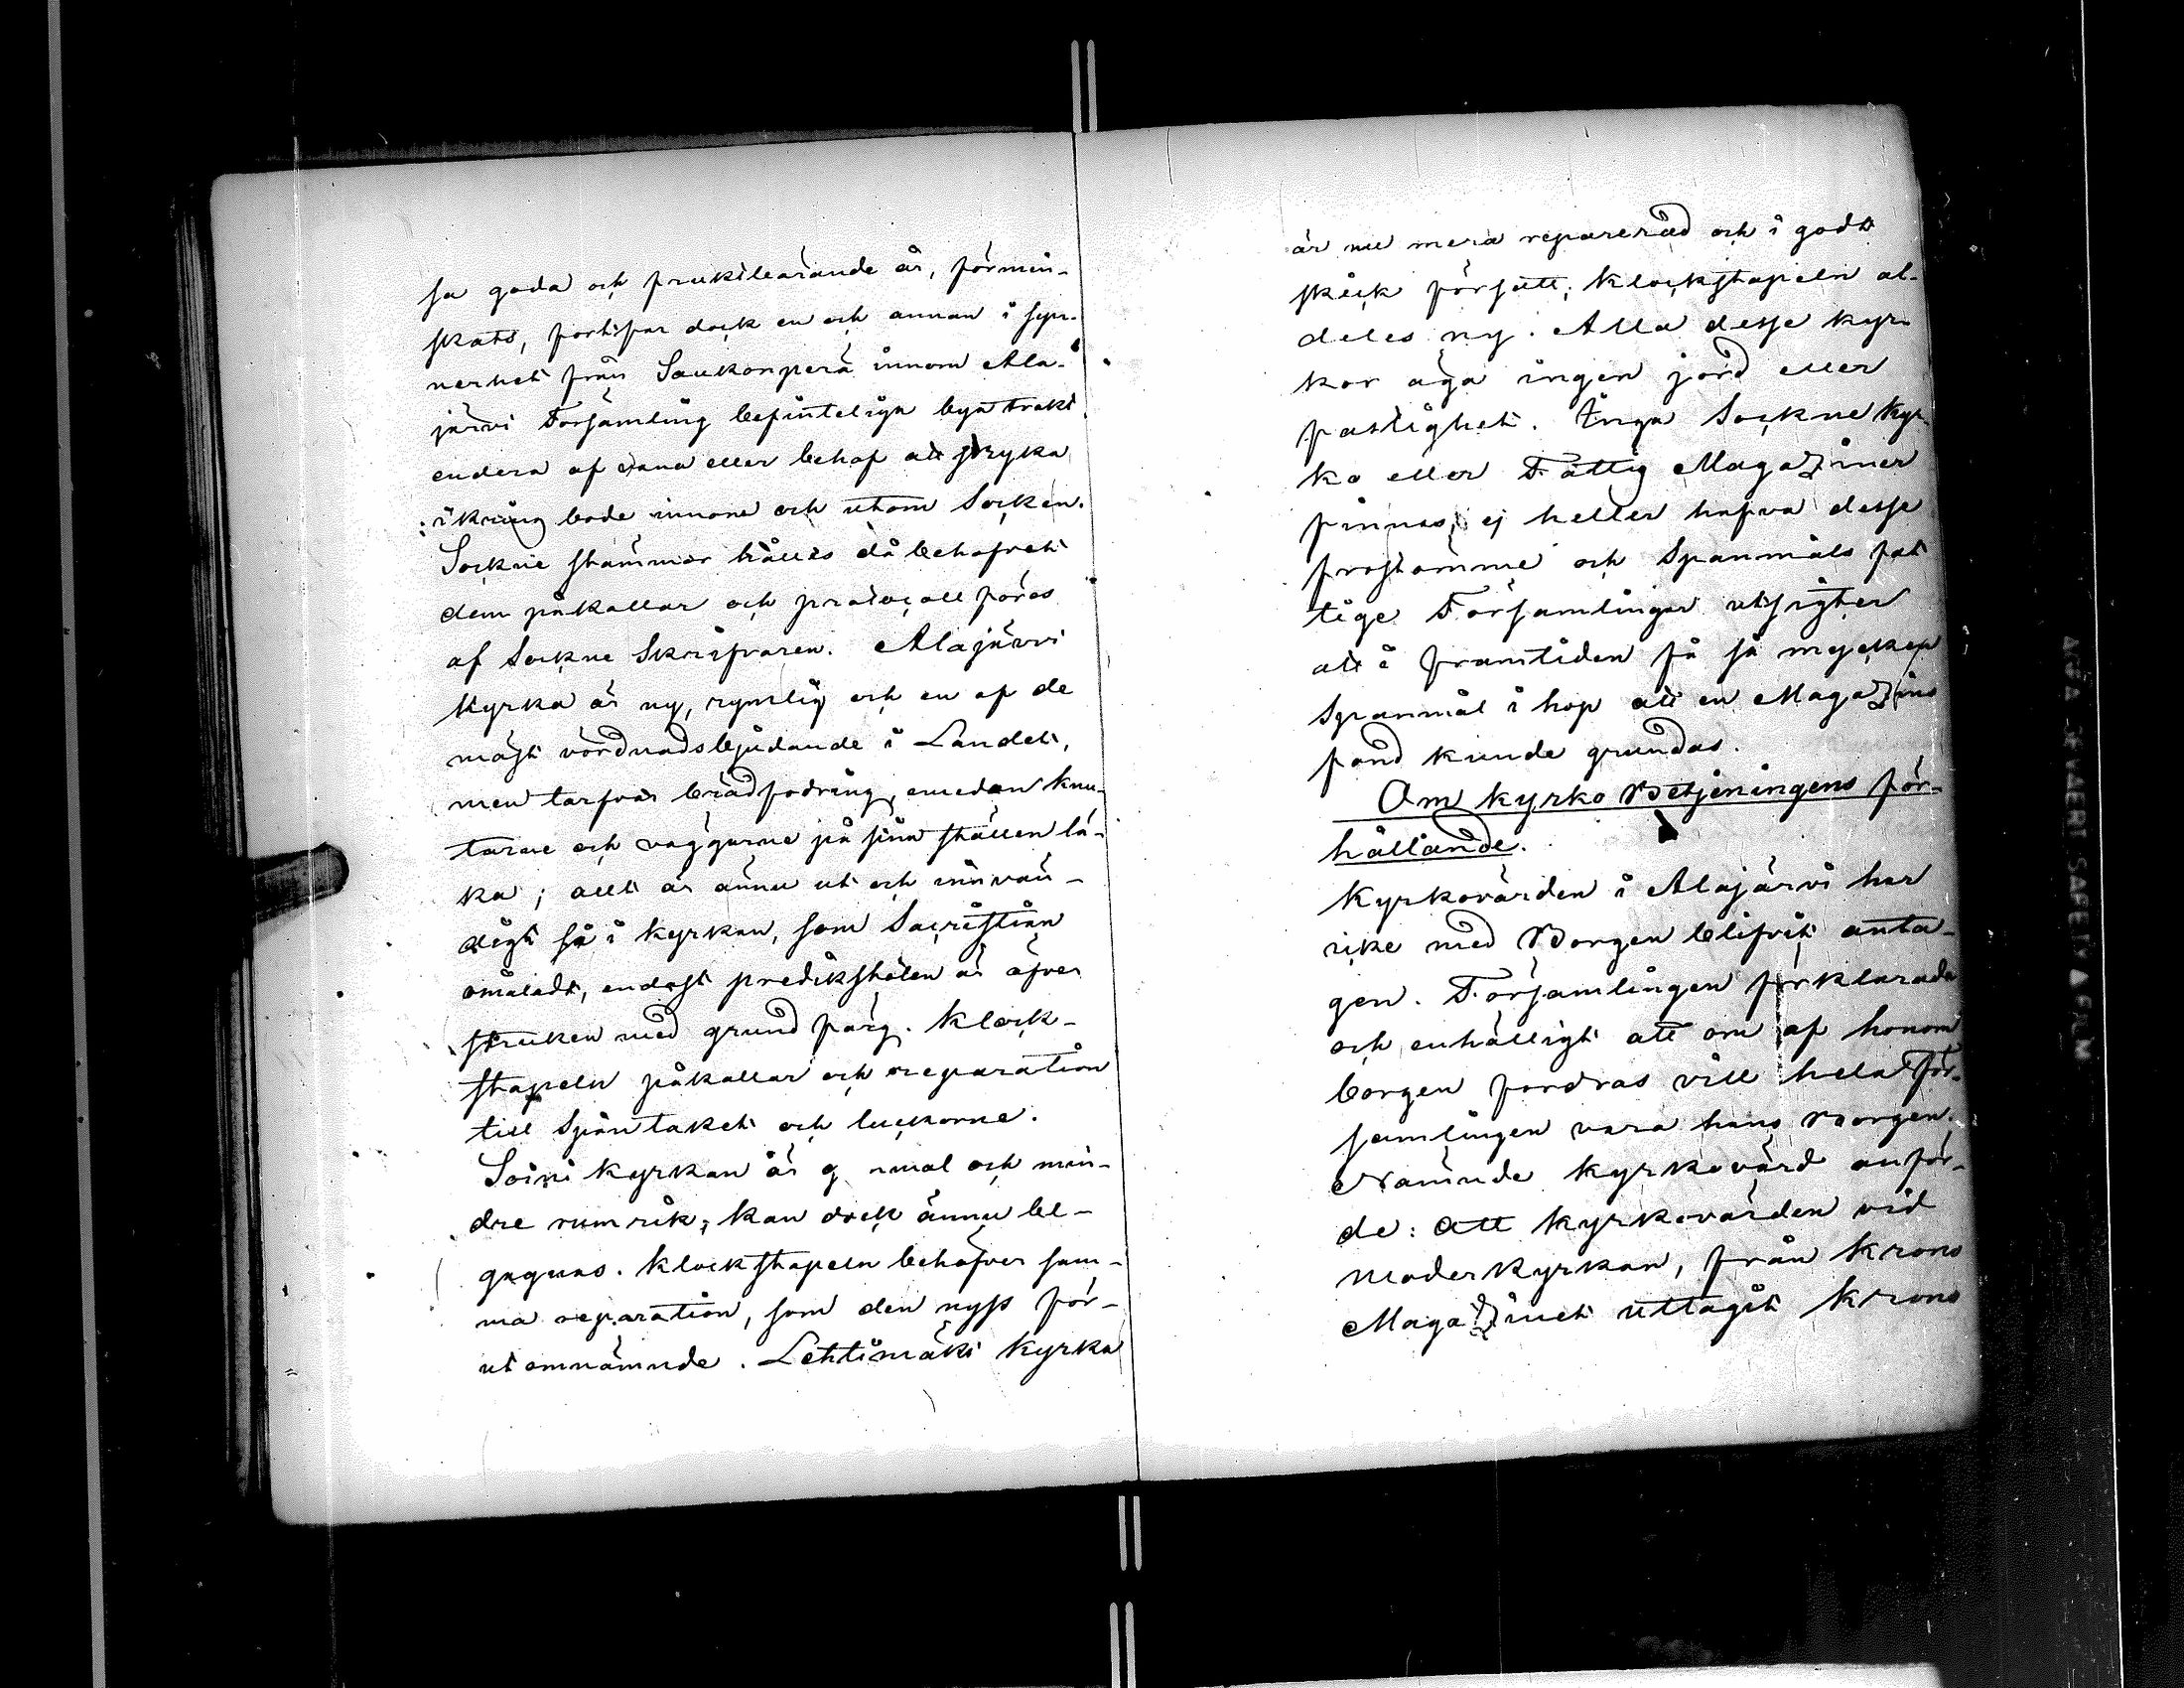 sa goda och fruktbärande år, förmin-
skats, fortfar dock en och annan i syn-
nerhet från Saukonperä innom Ala-
järvi Församling befinteliga byatrakt
endera af vana eller behof att stryka
ikring bode innom och utom Socken.
Sockne stämmor hålles då behofvet
dem påkallar och protocoll föres
af Sockne Skrifvaren. Alajärvi
Kyrka är ny, rymlig och en af de
mäst vördnadsbjudande i Landet,
men tarfvar brädfodring, emedan knu-
tarne och väggarne på sina ställen lä-
ka; allt är ännu ut och invän-
digt så i kyrkan, som Sacristian
omåladt, endast predikstolen är öfver
struken med grund färg. Klock-
stapeln påkallar och reparation
till Spåntaket och luckorne.
Soini kyrkan är gammal och min-
dre rumrik, kan dock ännu be-
gagnas. Klockstapeln behöfver sam-
ma reparation, som den nyss för-
ut omnämnde. Lehtimäki Kyrka
är nu mera reparerad och i godt
skick försatt; Klockstapeln al-
deles ny. Alla desse kyr-
kor äga ingen jord eller
fastighet. Inga Sockne Kyr-
ko eller Fattig Magaziner
finnas, ej heller hafva desse
frostömme och Spanmåls fat
tige Församlingar utsigter
att i framtiden få så mycken
Spanmål i hop att en Magazins
fond kunde grundas.
Om kyrko Betjeningens för-
hållande.
Kyrkovärden i Alajärvi har
icke med Borgen blifvit anta-
gen. Församlingen förklarade
och enhälligt att om af honom
borgen fordras vill hela För-
samlingen vara hans Borgen.
Nämnde Kyrkovärd anför-
de: att kyrkovärden vid
Moderkyrkan, från Krono
Magazinet uttagit Krono